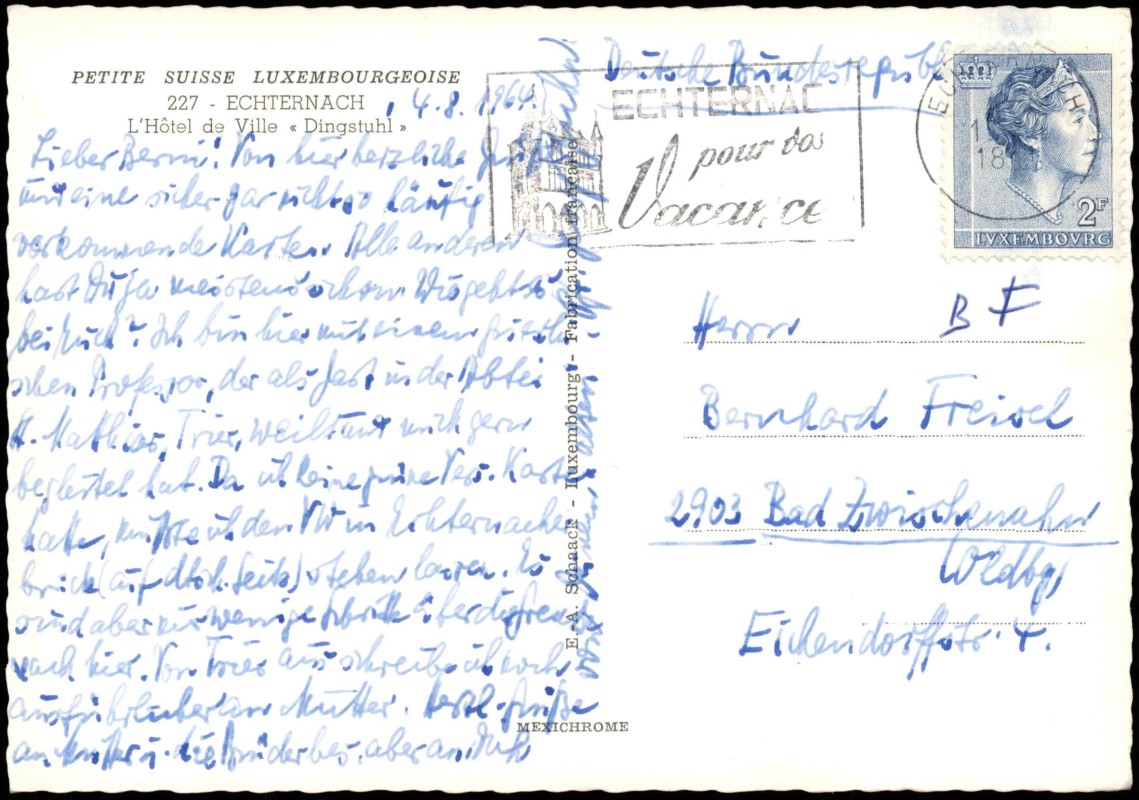 PETITE SUISSE LUXEMBOURGEOISE
227 - ECHTERNACH
L'Hôtel de Ville « Dingstuhl »
, 4.8.1964.
Lieber Berni! Von hier herzliche Grüße
und eine sicher gar nicht so häufig
vorkommende Karte. Alle anderen
hast Du ja meistens schon. Wie geht's
bei Euch? Ich bin hier mit einem griechi-
schen Professor, der als Gast in der Abtei
St. Mathias, Trier, weilt und mich gern
begleitet hat. Da ich keine grüne Vers. Karte
hatte, mußte ich den VW in Echternacher-
brück (auf dtsch. Seite) stehen lassen. Es
sind aber nur wenige Schritte über die Grenze
nach hier. Von Trier aus schreibe ich noch
ausführlicher an Mutter. Herzl. Grüße
an Mutter u. die Brüder bes. aber an Dich
E. A. Schaack - Luxembourg - Fabrication française
MEXICHROME
Deutsche Bundesrepubl
ECHTERNAC
pour vos
Vacance
18
2F
LVXEMBOVRG
B F
Herrn
Bernhard Freisel
2903 Bad Zwischenahn
i/Oldbg,
Eichendorffstr. 4.